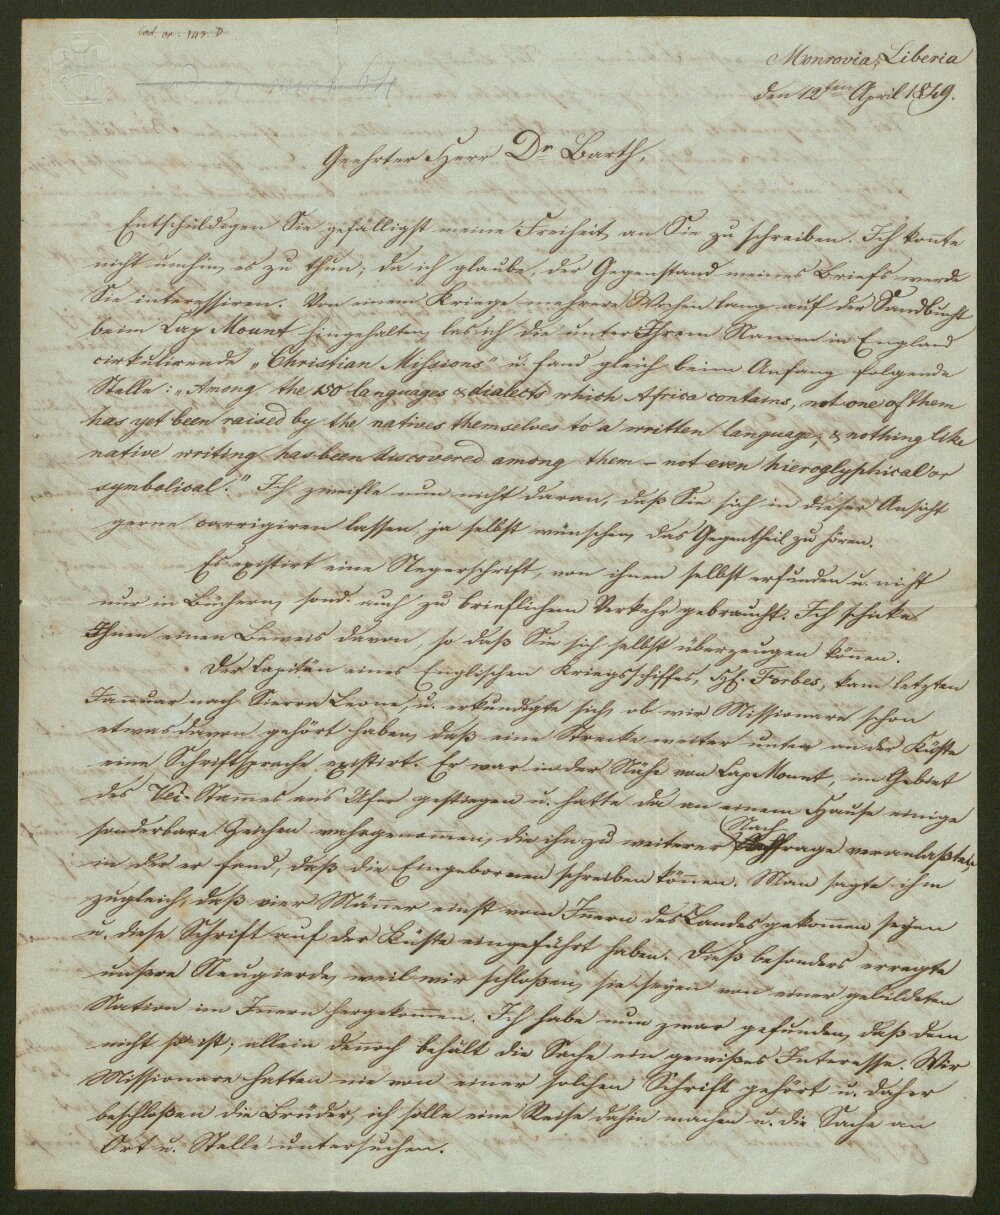 Cod. or. 142. D
Monrovia, Liberia
den 12ten April 1849.
Geehrter Herr Dr Barth,
Entschuldigen Sie gefälligst meine Freiheit, an Sie zu schreiben. Ich konnte
nicht umhin, es zu thun, da ich glaube, der Gegenstand meines Briefs werde
Sie interessiren. Von einem Kriege mehrere Wochen lang auf der Sandbucht
beim Cap Mount hingehalten, las ich die unter Ihrem Namen in England
cirkulirende „Christian Missions" u. fand gleich beim Anfang folgende
Stelle: „Among the 150 languages & dialects which Africa contains, not one of them
has yet been raised by the natives themselves to a written language, & nothing like
native writing has been discovered among them – not even hieroglyphical or
symbolical." Ich zweifle nun nicht daran, daß Sie sich in dieser Ansicht
gerne corrigiren lassen, ja selbst wünschen, das Gegentheil zu hören.
Es existirt eine Negerschrift, von ihnen selbst erfunden u. nicht
nur in Büchern, sond. auch zu brieflichem Verkehr gebraucht. Ich schicke
Ihnen einen Beweis davon, so daß Sie sich selbst überzeugen können.
Der Capitän eines Englischen Kriegsschiffes, H. Forbes, kam letzten
Januar nach Sierra Leone, u. erkundigte sich, ob wir Missionare schon
etwas davon gehört haben, daß eine Strecke weiter unten an der Küste
eine Schriftsprache existirt. Er war in der Nähe von Cape Mount, im Gebiet
des Vei-Stammes ans Ufer gestiegen u. hatte da an einem Hause einige
sonderbare Zeichen wahrgenommen, die ihn zu weiterer Nachfrage veranlaßten,
in der er fand, daß die Eingebornen schreiben können. Man sagte ihm
zugleich, daß vier Männer einst vom Innern des Landes gekommen seyen
u. diese Schrift auf der Küste eingeführt haben. Dieß besonders erregte
unsere Neugierde, weil wir schloßen, sie seyen von einer gebildeten
Nation im Innern hergekommen. Ich habe nun zwar gefunden, daß dem
nicht so ist; allein dennoch behält die Sache ein gewißes Interesse. Wir
Missionare hatten nie von einer solchen Schrift gehört u. daher
beschloßen die Brüder, ich solle eine Reise dahin machen u. die Sache an
Ort u. Stelle untersuchen.